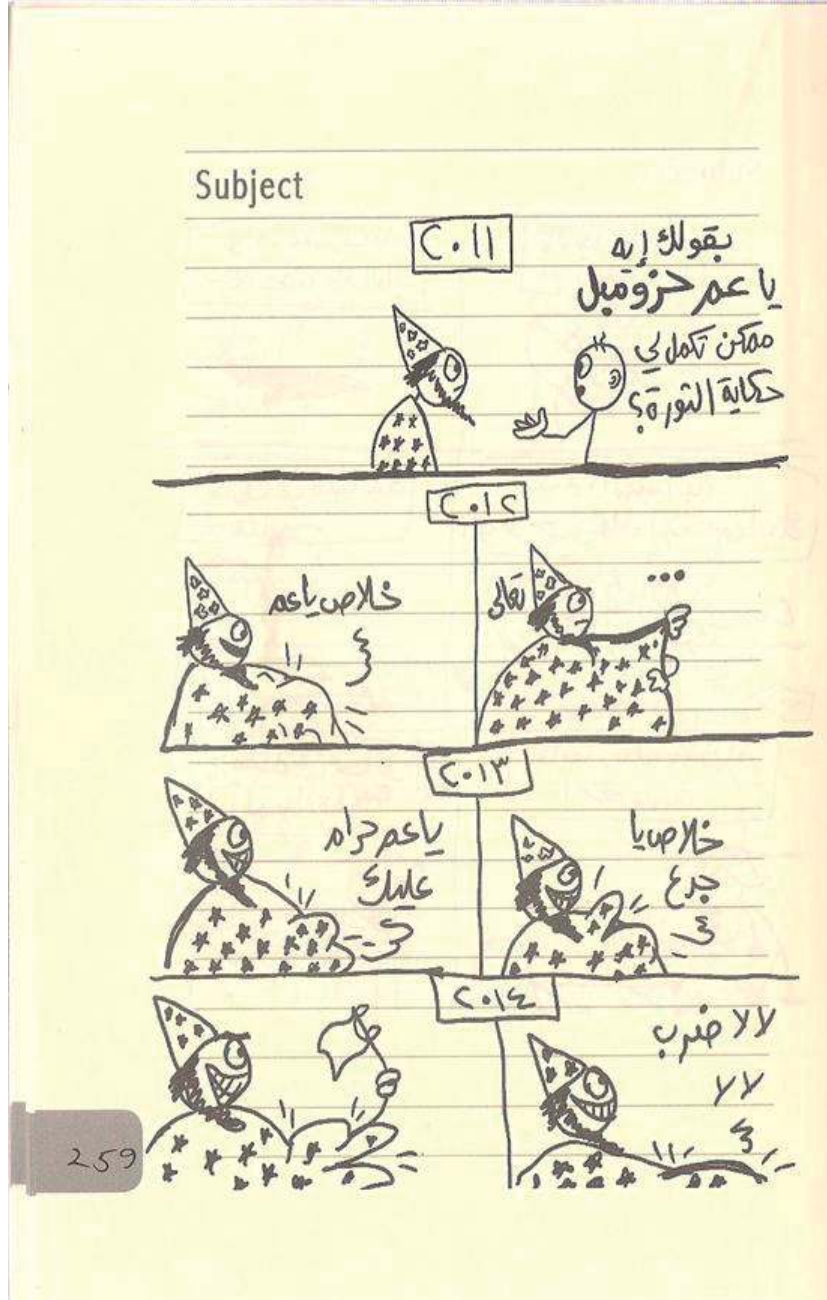 Subject
٢٠١١
بقولك إيه
يا عم حزومبل
ممكن تكمل لي
حكاية الثورة؟
٢٠١٢
...
تعالى
خلاص يا عم
٢٠١٣
خلاص يا
جدع
يا عم حرام
عليك
٢٠١٤
لا لا ضرب
لا لا
259